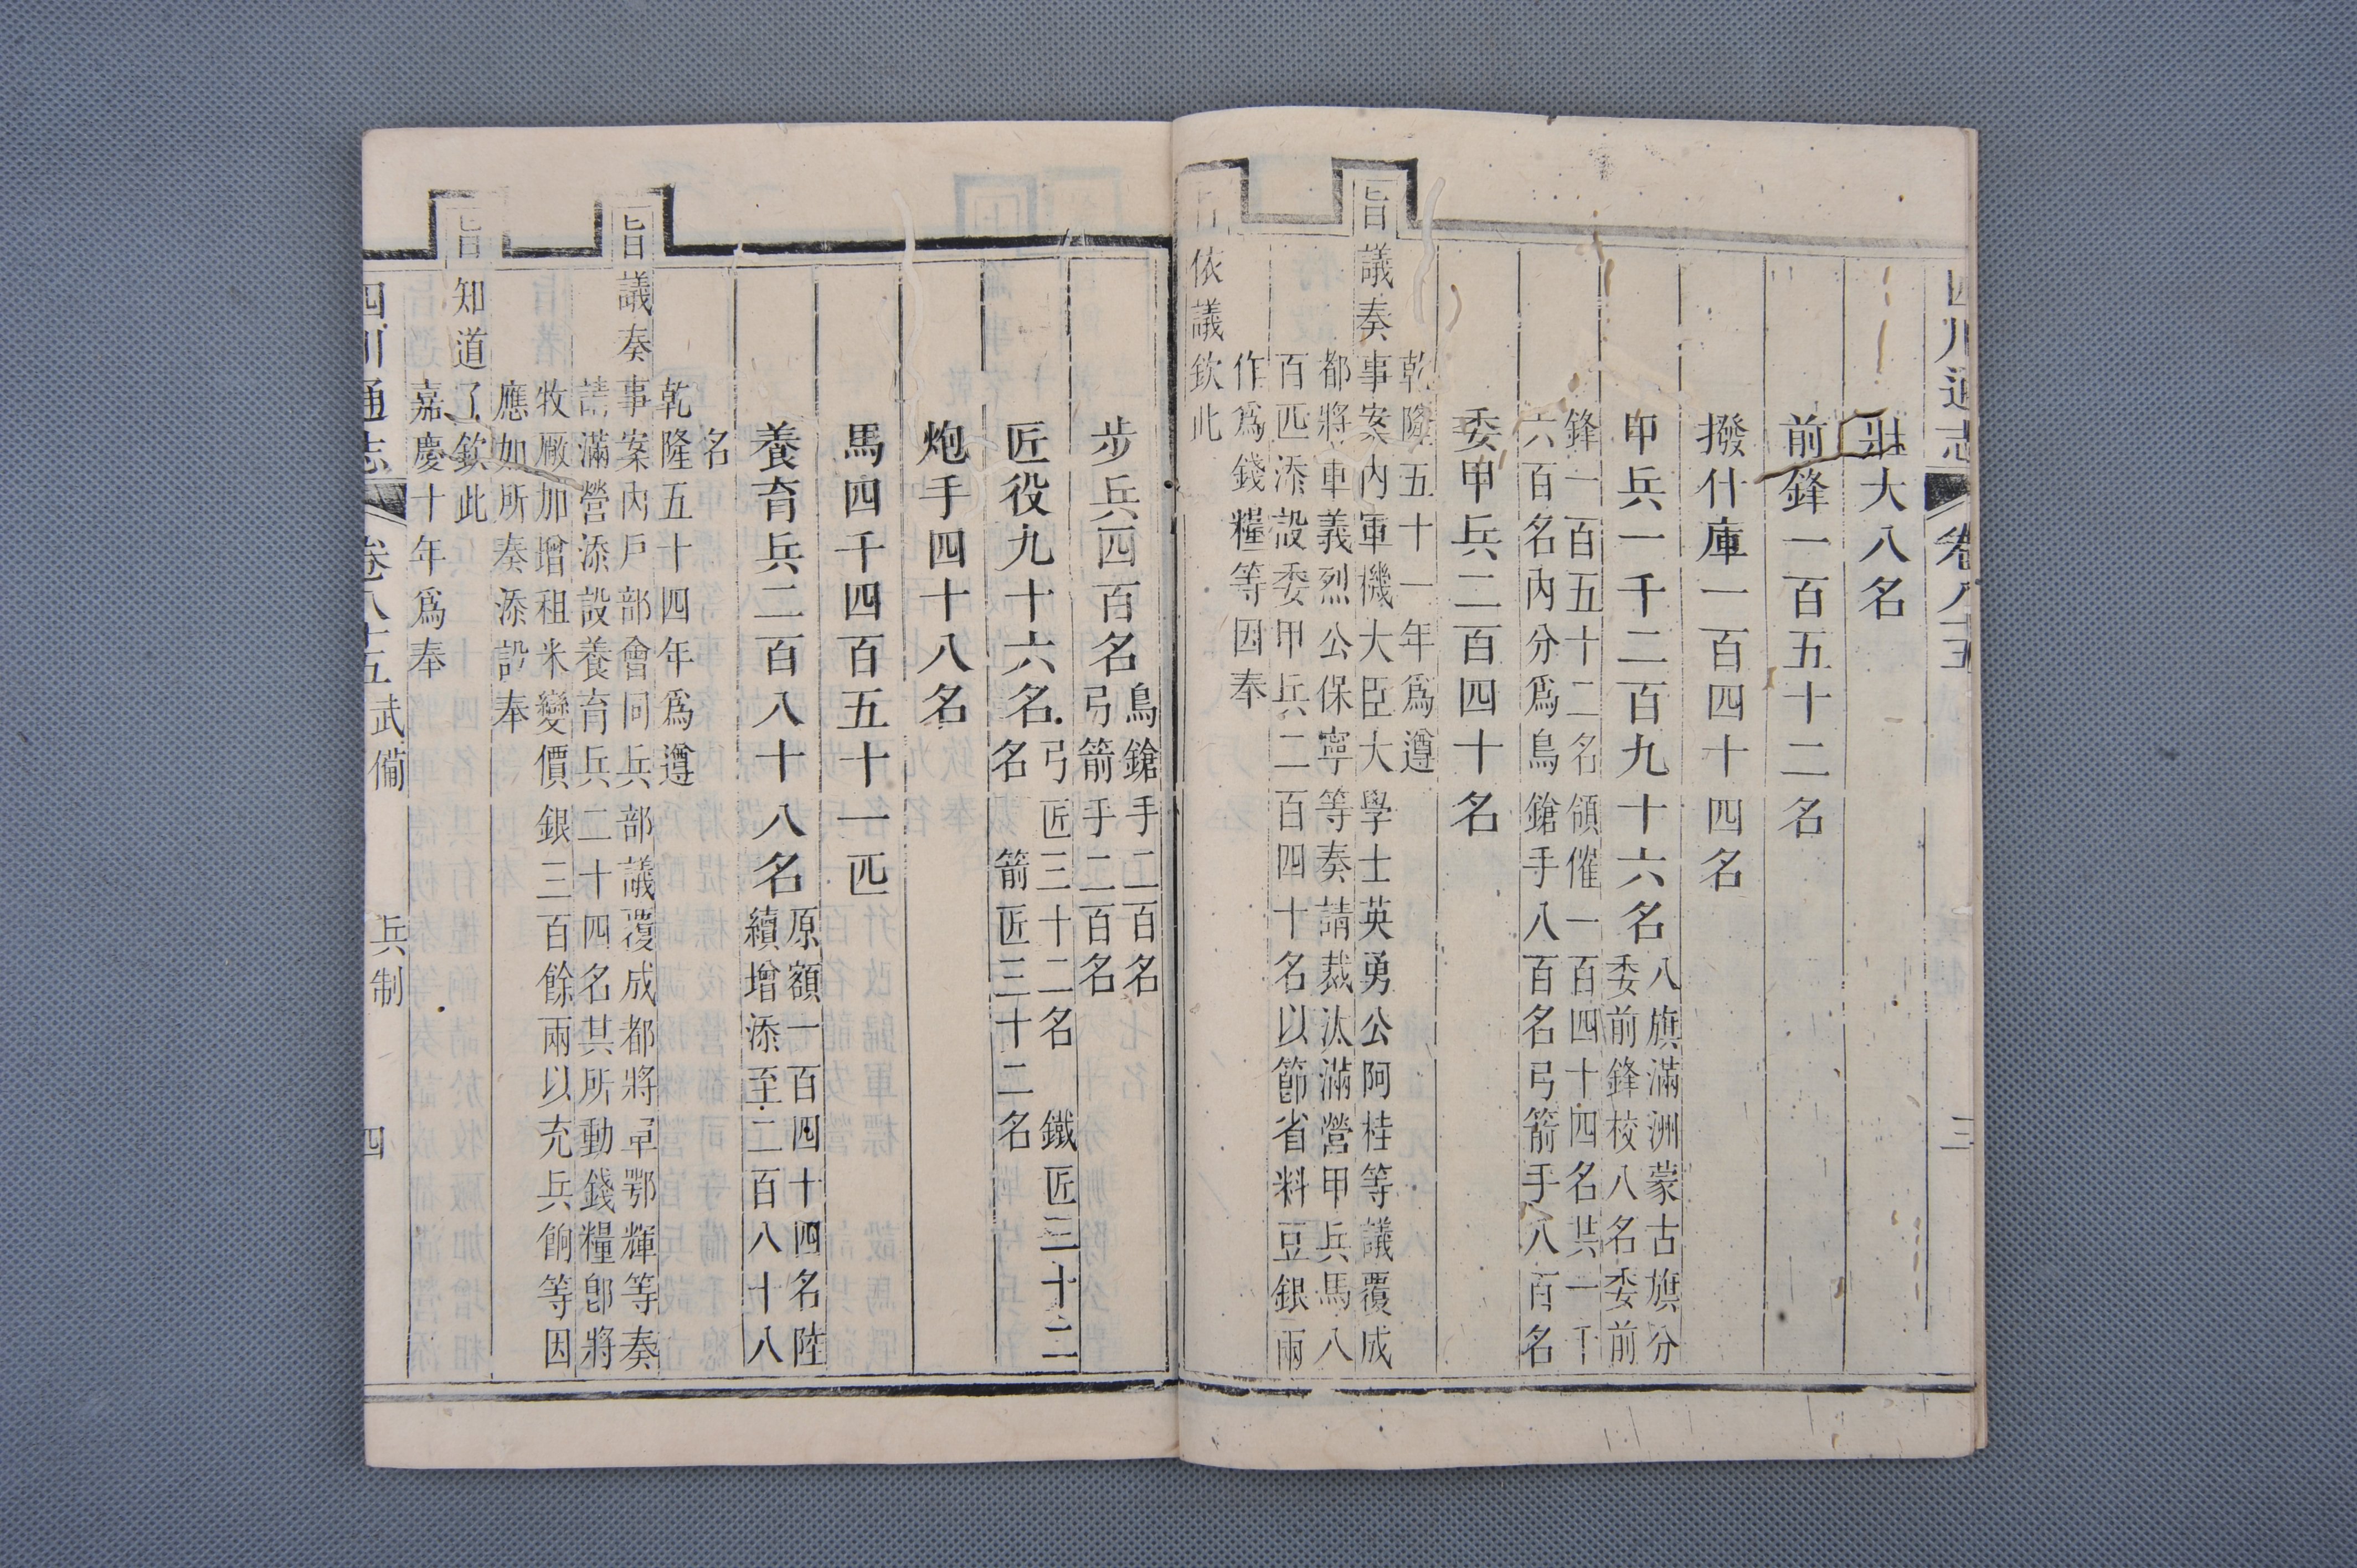 四川通志 卷八十五 三
壯大八名
前鋒一百五十二名
撥什庫一百四十四名
甲兵一千二百九十六名
八旗滿洲蒙古旗分
委前鋒校八名委前
鋒一百五十二名領催一百四十四名共一千
六百名內分爲鳥鎗手八百名弓箭手八百名
委甲兵二百四十名
乾隆五十一年爲遵
旨議奏事案內軍機大臣大學士英勇公阿桂等議覆成
都將軍義烈公保寧等奏請裁汰滿營甲兵馬八
百匹添設委甲兵二百四十名以節省料豆銀兩
作爲錢糧等因奉
旨依議欽此
步兵四百名
鳥鎗手二百名
弓箭手二百名
匠役九十六名
弓匠三十二名 鐵匠三十二
名 箭匠三十二名
炮手四十八名
馬四千四百五十一匹
養育兵二百八十八名
原額一百四十四名陸
續增添至二百八十八
名
乾隆五十四年爲遵
旨議奏事案內戶部會同兵部議覆成都將軍鄂輝等奏
請滿營添設養育兵二十四名其所動錢糧卽將
牧厰加增租米變價銀三百餘兩以充兵餉等因
應如所奏添設奉
旨知道了欽此
嘉慶十年爲奉
四川通志 卷八十五 武備 兵制 四